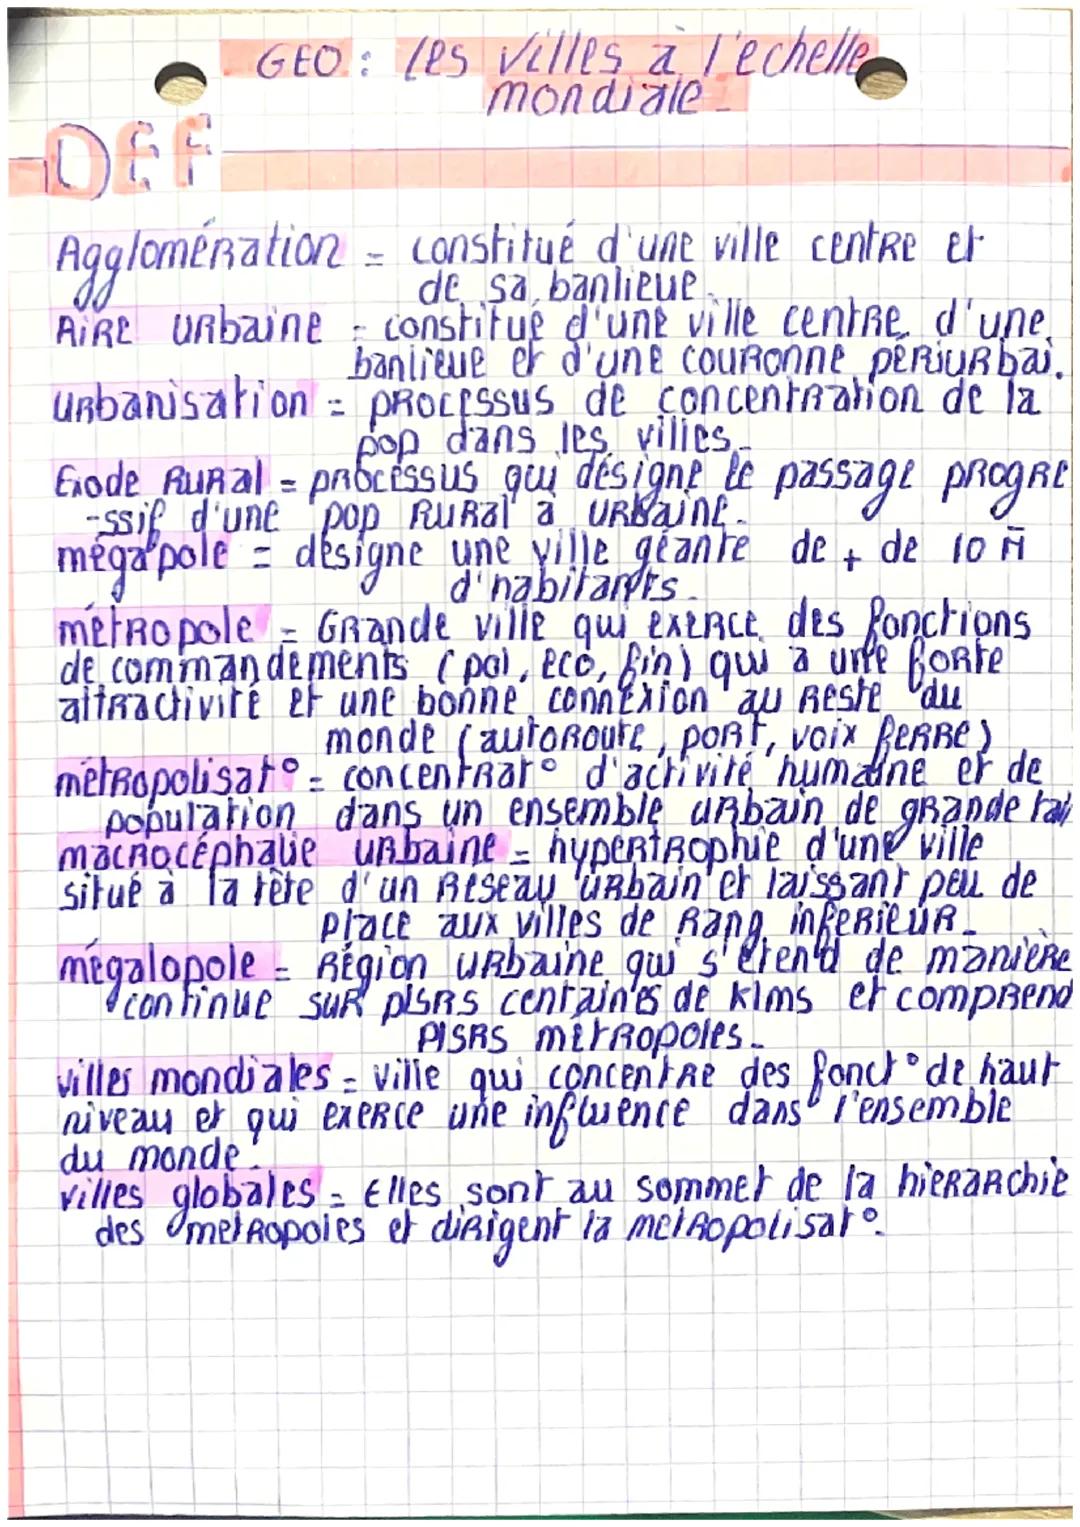 GEO : les villes à l'echelle
mondiale -
DEF
Agglomération = constitué d'une ville centre et
de sa banlieue.
Aire urbaine = constitué d'une ville centre, d'une
banlieue et d'une couronne périurbai.
urbanisation = processus de concentration de la
pop dans les villes -
Exode Rural = processus qui désigne le passage progre
-ssif d'une pop rural à urbaine.
mégapole = désigne une ville géante de + de 10 M
d'habitants.
métropole = Grande ville qui exerce des fonctions
de commandements (pol, eco, fin) qui a une forte
attractivité et une bonne connexion au reste du
monde (autoroute, port, voix ferre)
métropolisat° = concentrat° d'activité humaine et de
population dans un ensemble urbain de grande tail
macrocéphalie urbaine = hypertrophie d'une ville
situé à la tête d'un réseau urbain et laissant peu de
place aux villes de rang inferieur -
mégalopole = Région urbaine qui s'étend de manière
continue sur plsrs centaines de klms et comprend
plsrs metropoles -
villes mondiales = ville qui concentre des fonct° de haut
niveau et qui exerce une influence dans l'ensemble
du monde.
villes globales = Elles sont au sommet de la hierarchie
des metropoles et dirigent la metropolisat°.